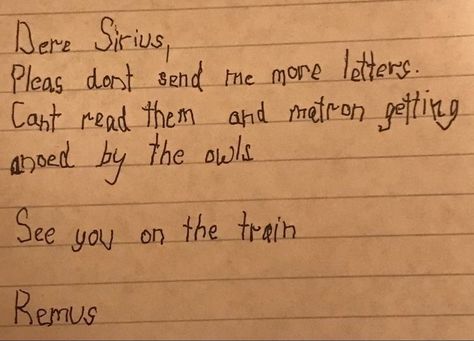 Dere Sirius,
Pleas dont send me more letters.
Cant read them and matron getting
anoed by the owls
See you on the train
Remus